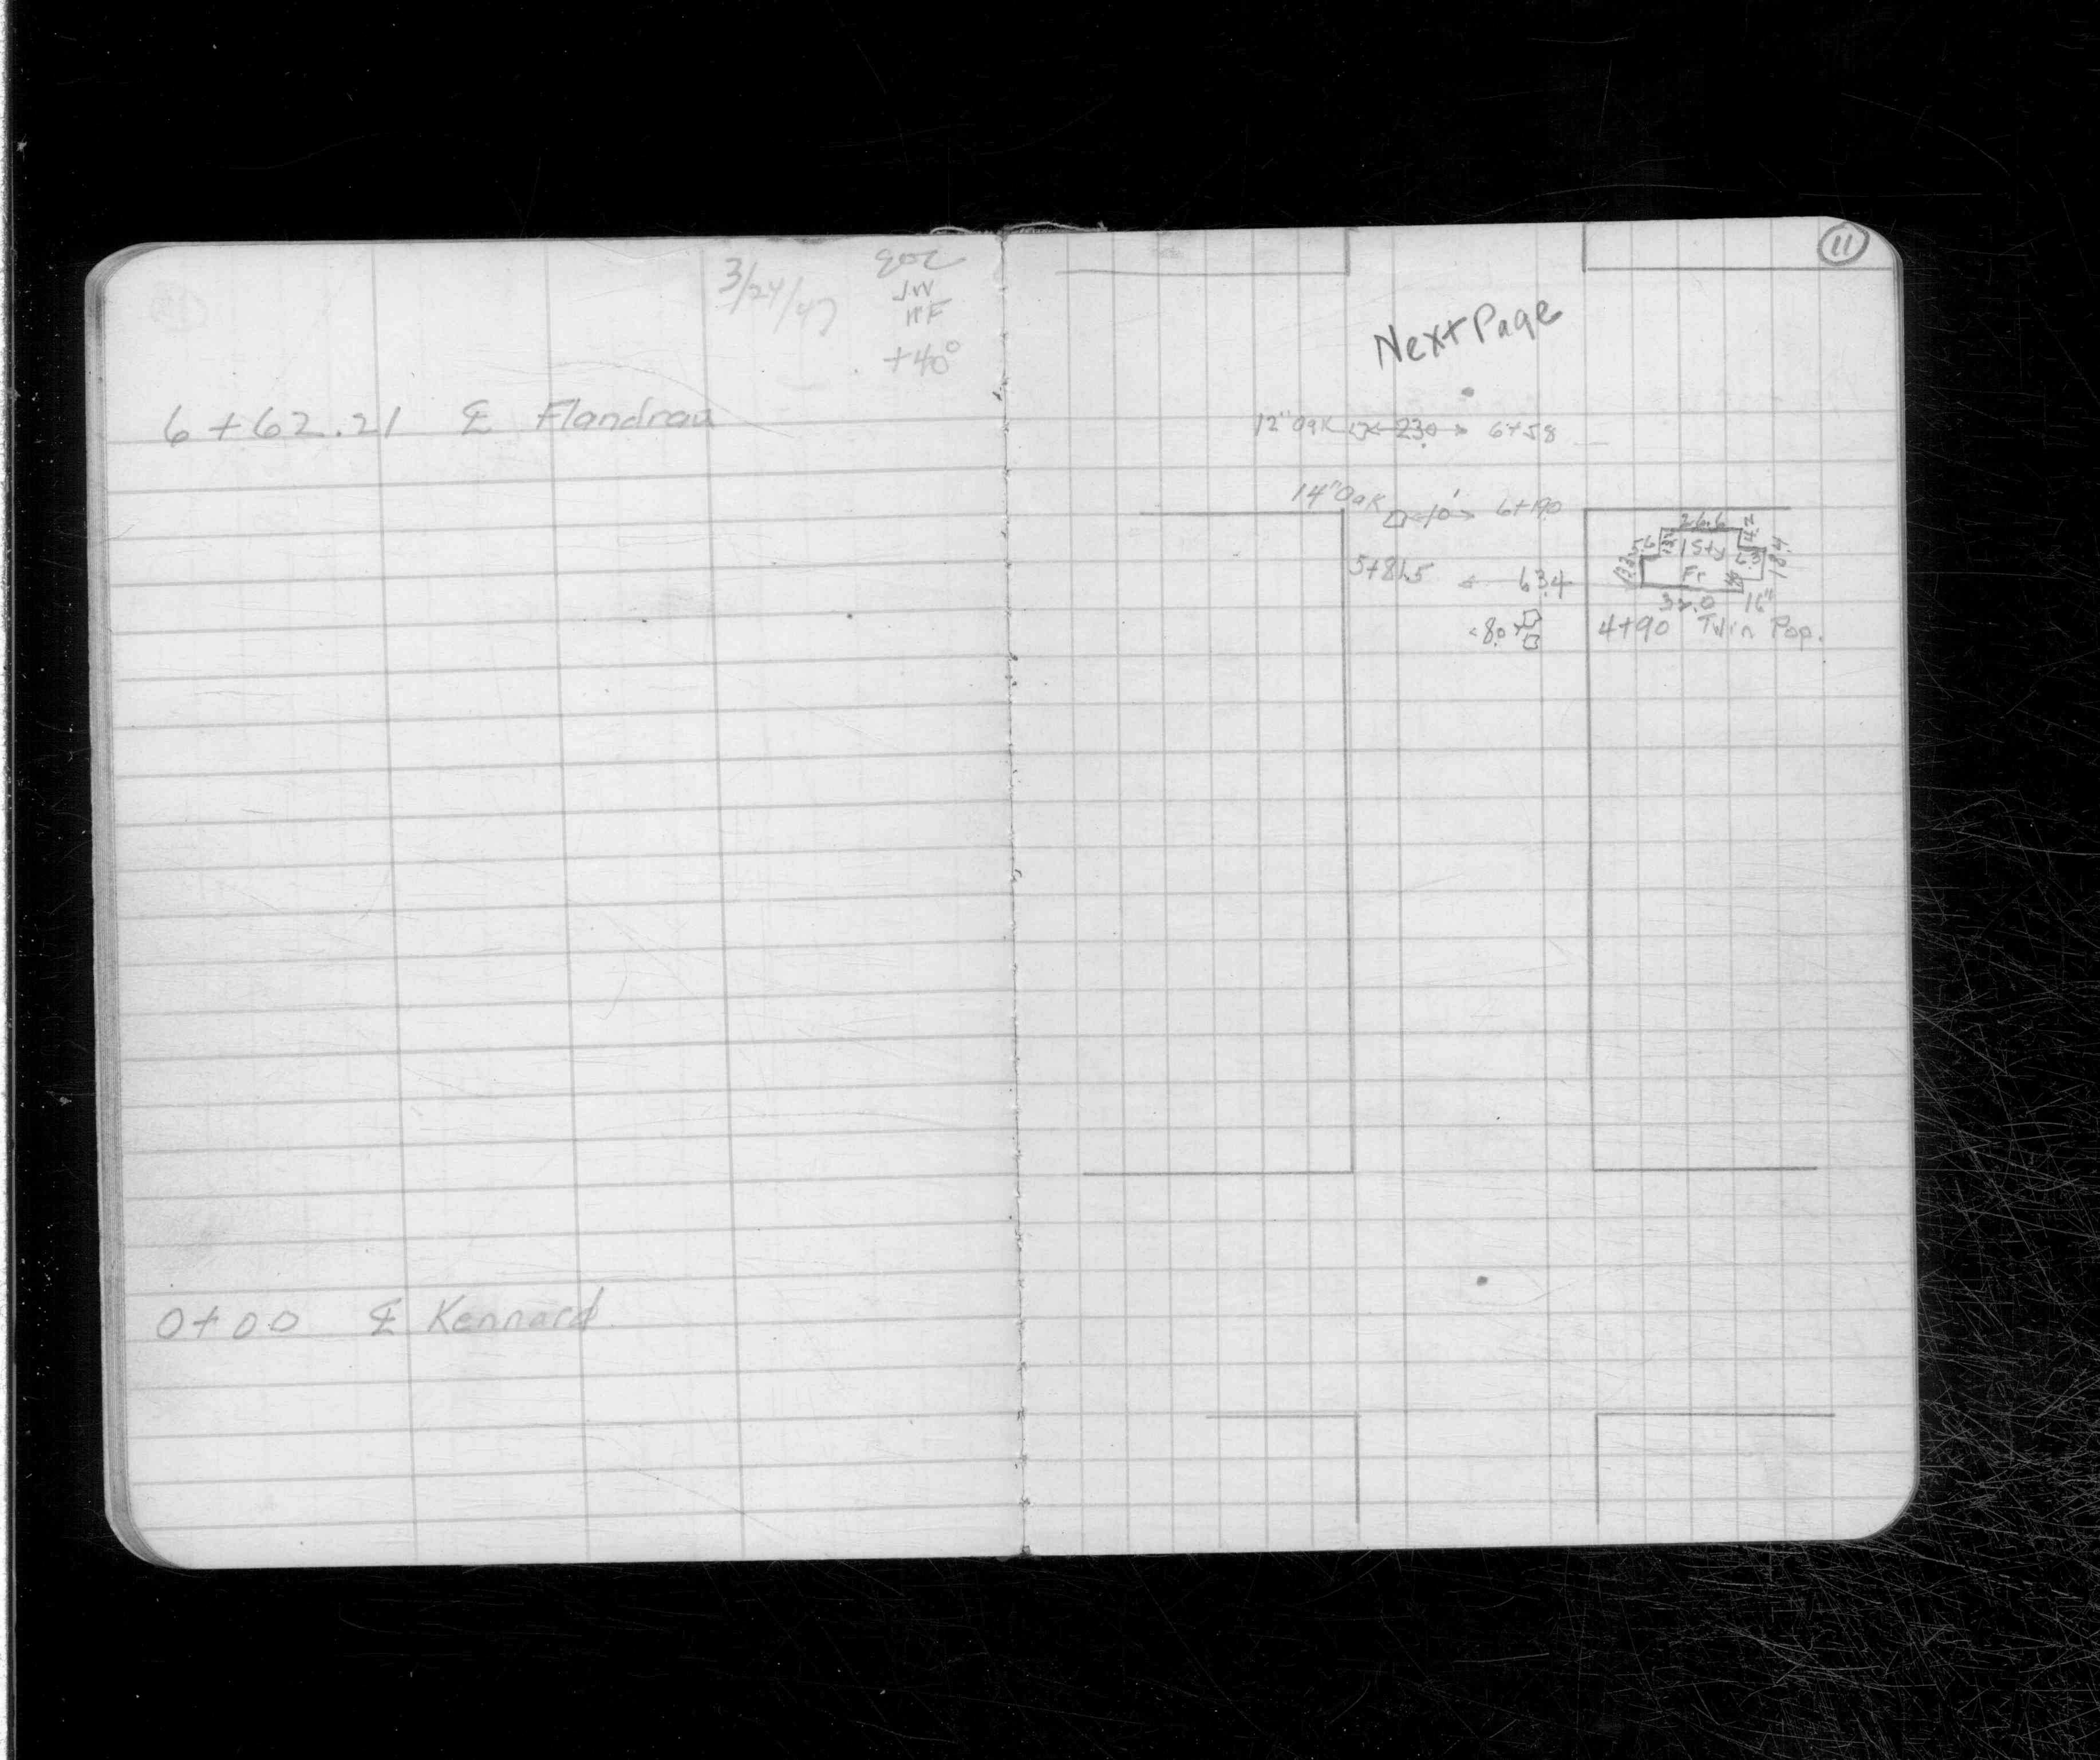 3/24/47
JW
+40°
6+62.21 ℄ Flandrau
0+00 ℄ Kennard
11
Next Page
12" Oak 23.0 6+58
14" Oak 10'
26.6
5.6 1 Sty
5+81.5 63.4 Fr 18.4
32.0 16"
8.0 4+90 Twin Pop.